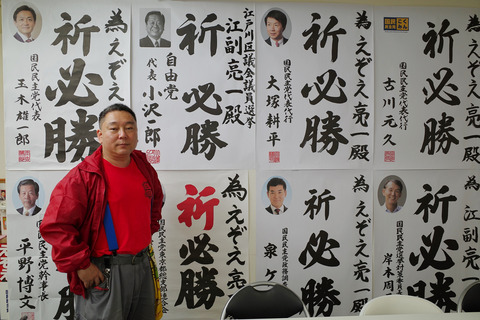 為えぞえ亮一殿
祈必勝
国民民主党代表
玉木雄一郎
江戸川区議会議員選挙
江副亮一殿
祈必勝
自由党
代表 小沢一郎
為えぞえ亮一殿
祈必勝
国民民主党代表代行
大塚耕平
為えぞえ亮一殿
祈必勝
国民民主党代表代行
古川元久
祈必勝
国民民主党幹事長
平野博文
為えぞえ亮
祈必勝
国民民主党東京都総支部連合会
為えぞえ亮一
祈必勝
国民民主党
泉ケ
江副亮
祈必勝
国民民主党選挙対策委員長
岸本周